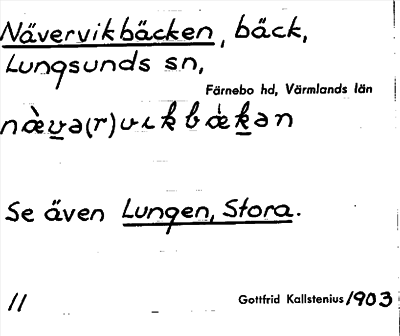 Nävervikbäcken, bäck,
Lungsunds sn,
Färnebo hd, Värmlands län
næ̀və(r)vɩkbæ̀kən
Se även Lungen, Stora.
11 Gottfrid Kallstenius 1903